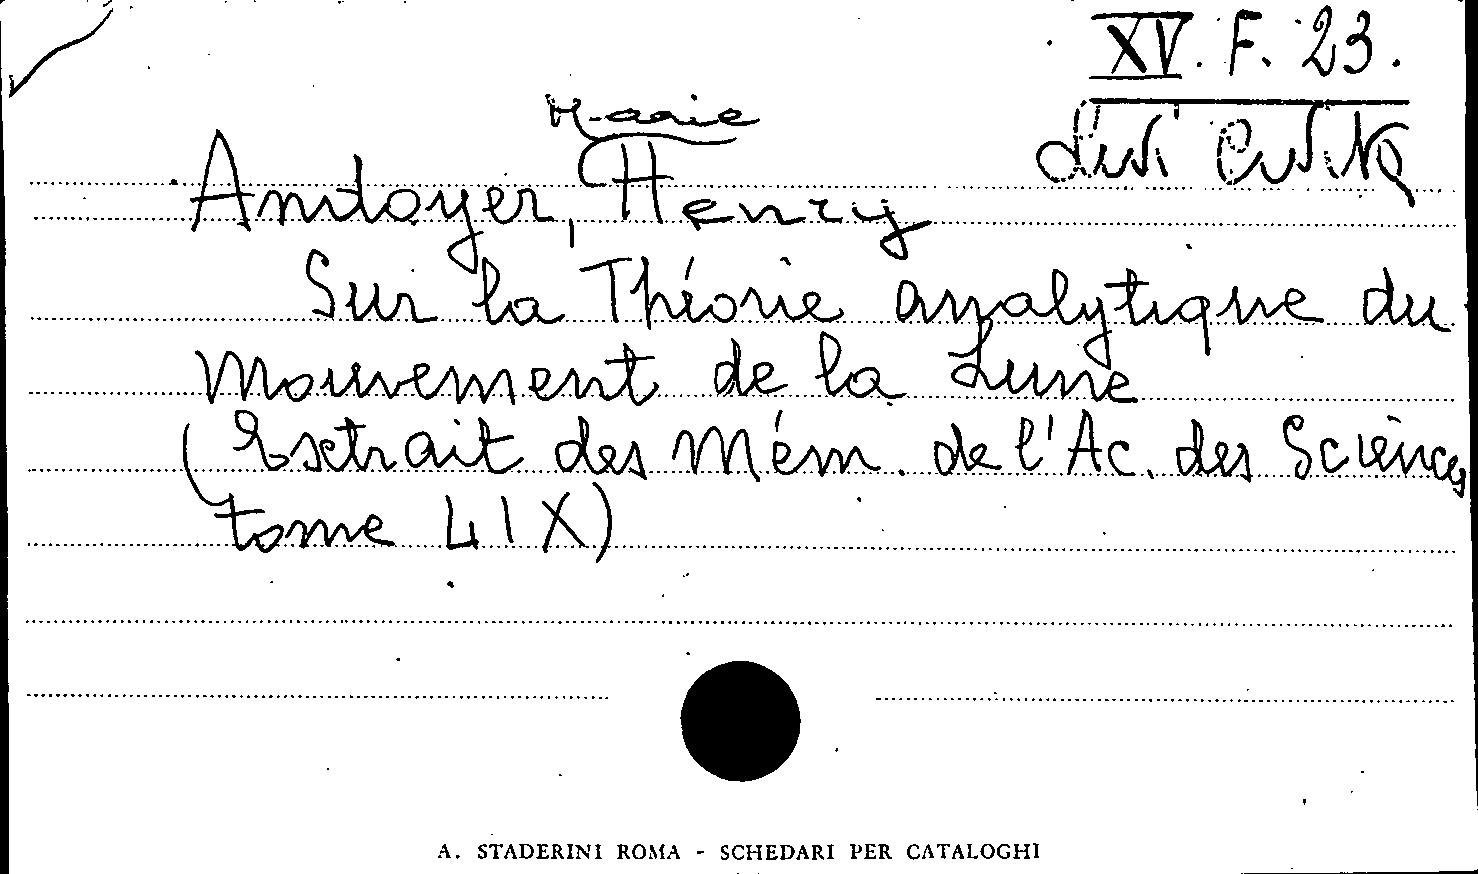 XV. F. 23.
Levi Civita
Marie
Andoyer, Henry
Sur la Théorie analytique du
Mouvement de la Lune
(Extrait des Mém. de l'Ac. des Sciences
tome LIX)
A. STADERINI ROMA - SCHEDARI PER CATALOGHI